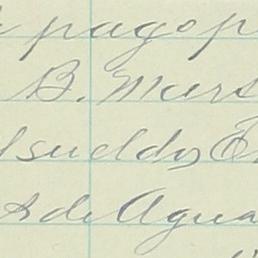 pago p
B. Mars
sueldos E
de Agua